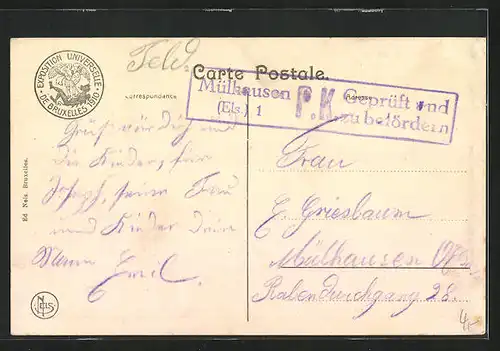 EXPOSITION UNIVERSELLE
DE BRUXELLES 1910
Feld
Carte Postale.
Correspondance
Adresse
Mülhausen P.K. Geprüft und
(Els.) 1 zu befördern
Gruß an dich und
die Kinder, für
Joseph, seine Frau
und Kinder dein
Mann Emil.
Frau
E. Griesbaum
Mülhausen
Rabendurchgang 28.
Ed Nels, Bruxelles.
NELS